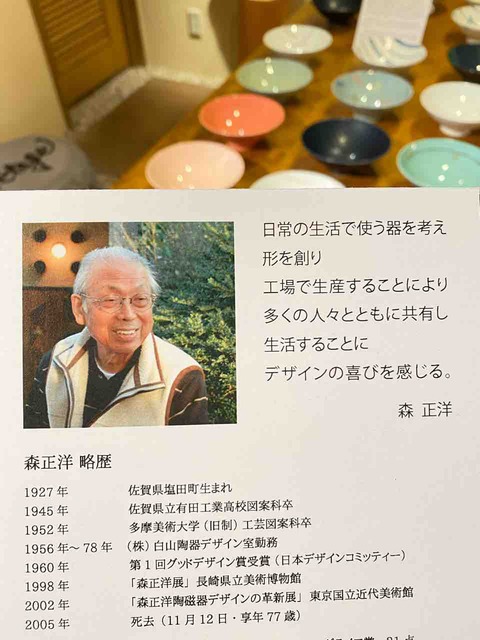 日常の生活で使う器を考え
形を創り
工場で生産することにより
多くの人々とともに共有し
生活することに
デザインの喜びを感じる。
森 正洋
森正洋 略歴
1927 年 佐賀県塩田町生まれ
1945 年 佐賀県立有田工業高校図案科卒
1952 年 多摩美術大学（旧制）工芸図案科卒
1956 年～ 78 年 （株）白山陶器デザイン室勤務
1960 年 第 1 回グッドデザイン賞受賞（日本デザインコミッティー）
1998 年 「森正洋展」長崎県立美術博物館
2002 年 「森正洋陶磁器デザインの革新展」東京国立近代美術館
2005 年 死去（11 月 12 日・享年 77 歳）